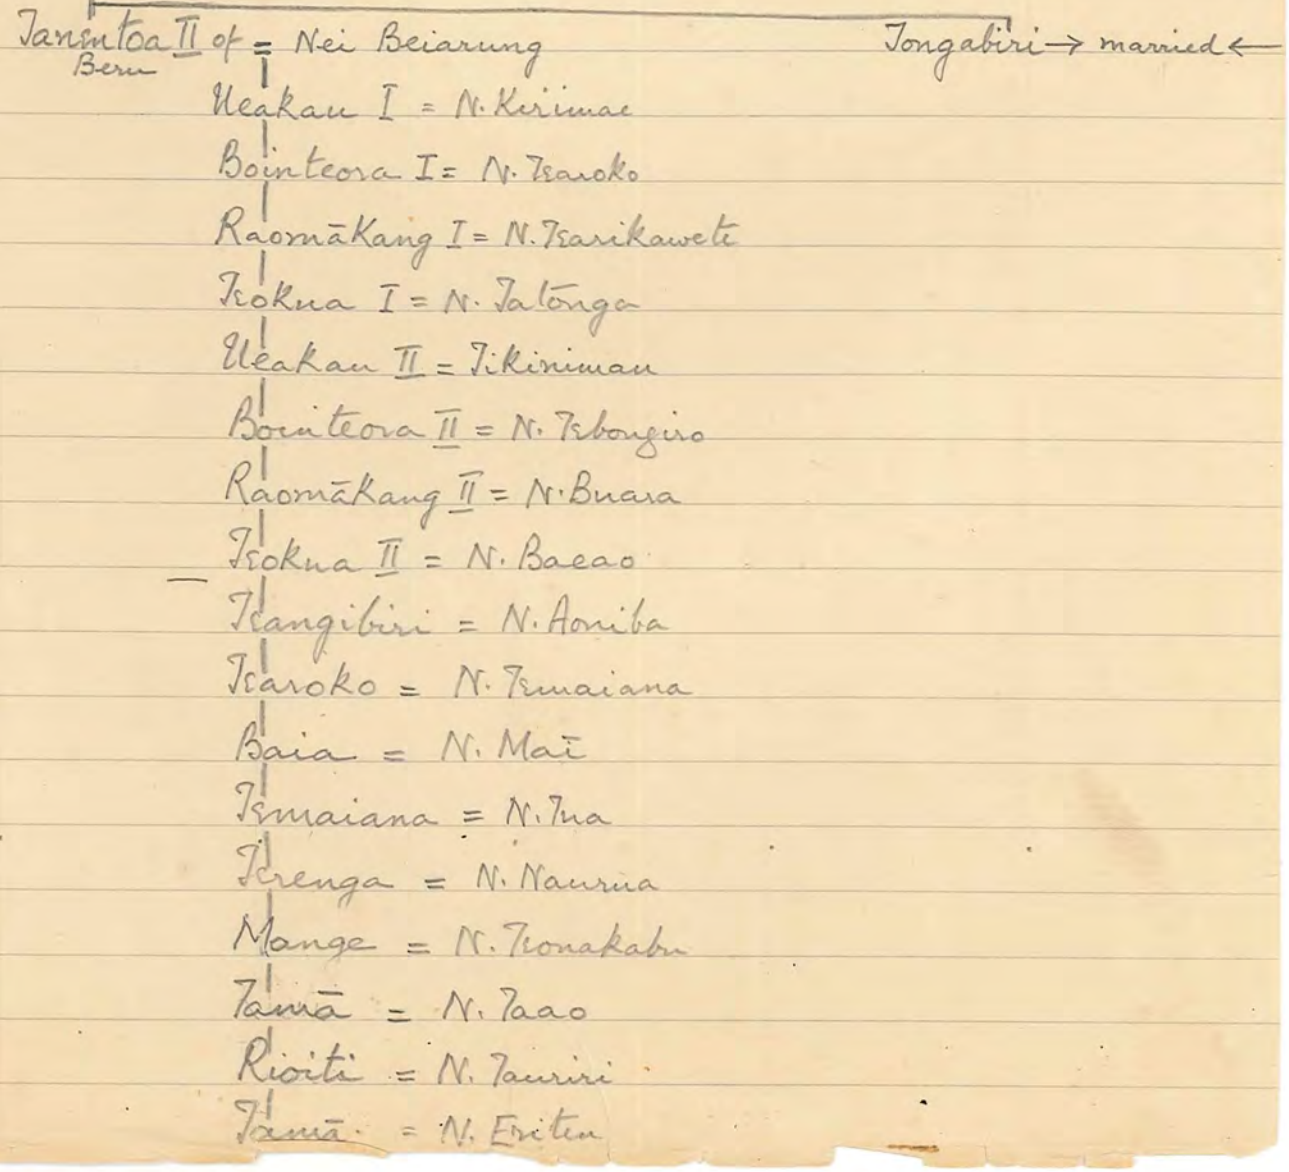 Tanentoa II of = Nei Beiarung Tongabiri → married ←
Beru
Ueakau I = N. Kirimae
Bointeora I = N. Tearoko
Raomākang I = N. Tearikawete
Teokua I = N. Tatōnga
Ueakau II = Tikiniman
Bointeora II = N. Tebongiro
Raomākang II = N. Buara
Teokua II = N. Baeao
Teangibiri = N. Aoniba
Tearoko = N. Temaiana
Baia = N. Maī
Temaiana = N. Tua
Terenga = N. Naurua
Mange = N. Teonakabu
Tamā = N. Taao
Rioiti = N. Tauriri
Tamā = N. Eriteu